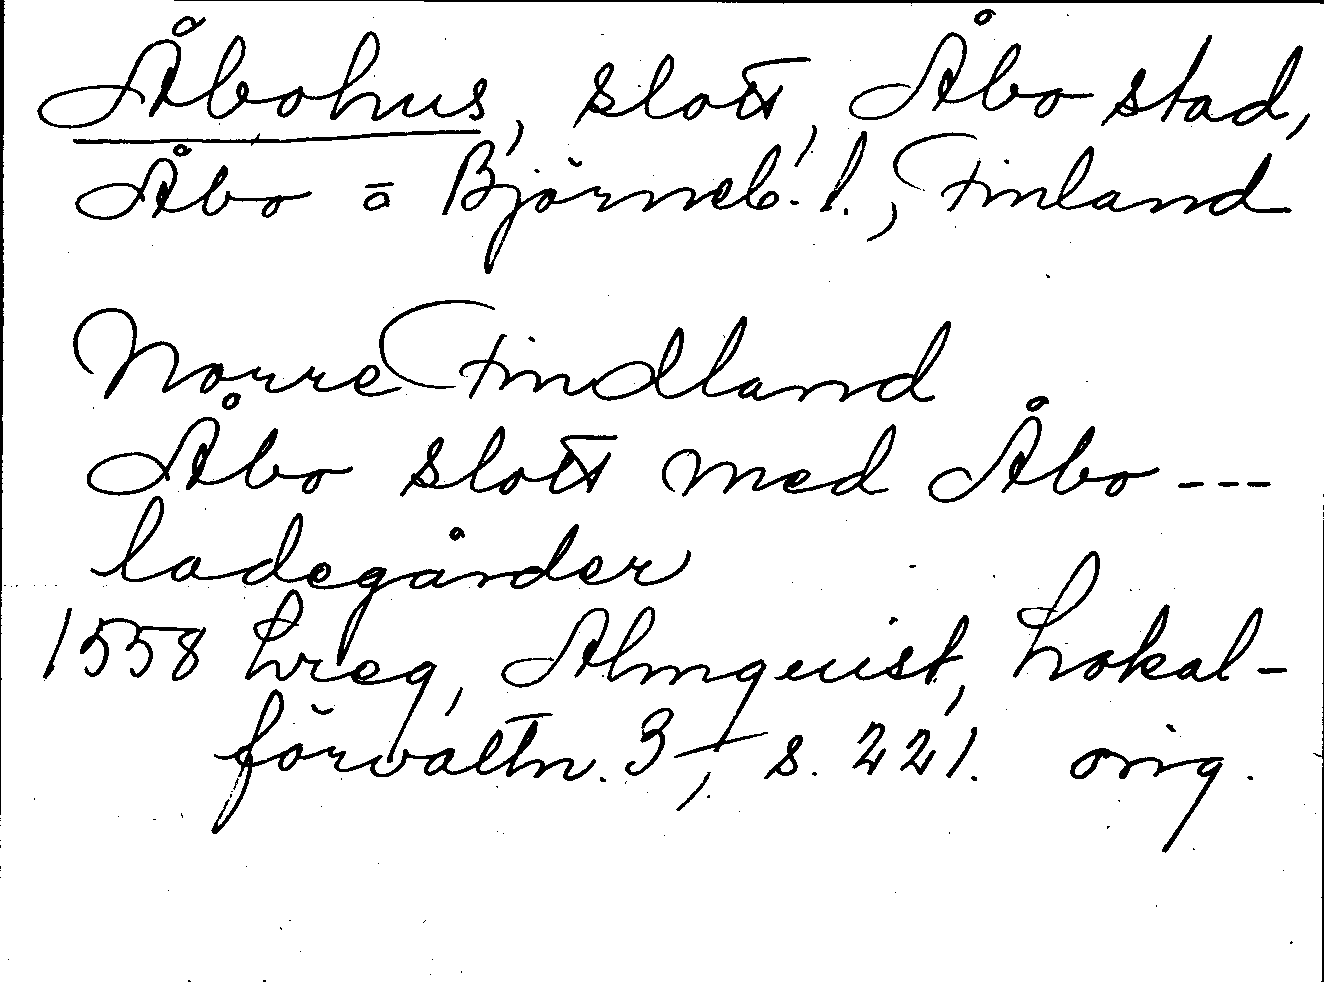 Åbohus, slott, Åbo stad,
Åbo = Björneb. l., Finland
Norre Findland
Åbo slott med Åbo ---
ladegårder
1558 Lreg, Almquist, Lokal-
förvaltn. 3, s. 221. orig.